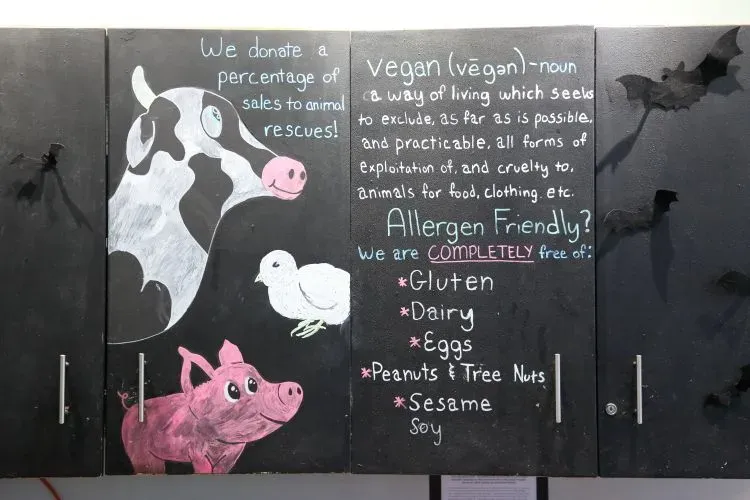 We donate a
percentage of
sales to animal
rescues!
vegan (vēgən)-noun
a way of living which seeks
to exclude, as far as is possible,
and practicable, all forms of
exploitation of, and cruelty to,
animals for food, clothing etc.
Allergen Friendly?
We are COMPLETELY free of:
*Gluten
*Dairy
*Eggs
*Peanuts & Tree Nuts
*Sesame
Soy